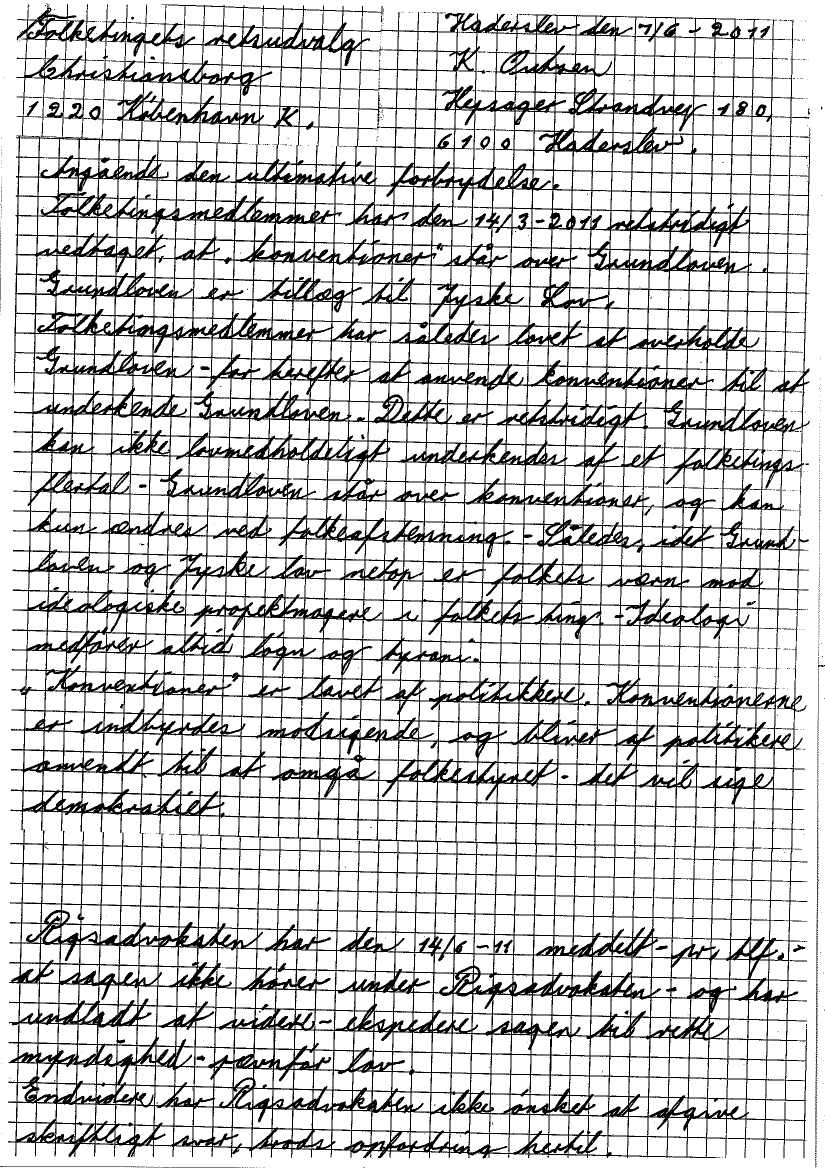 Folketingets retsudvalg
Christiansborg
1220 København K.
Haderslev den 7/6 - 2011
K. Outzen
Hejsager Strandvej 180,
6100 Haderslev.
Angående den ultimative forbrydelse.
Folketingsmedlemmer har den 14/3 - 2011 retstridigt
vedtaget, at „konventioner" står over Grundloven.
Grundloven er tillæg til Jyske Lov.
Folketingsmedlemmer har således lovet at overholde
Grundloven - for herefter at anvende konventioner til at
underkende Grundloven. Dette er retstridigt. Grundloven
kan ikke lovmedholdeligt underkendes af et folketings-
flertal - Grundloven står over konventioner, og kan
kun ændres ved folkeafstemning. - Således, idet Grund-
loven og Jyske lov netop er folkets værn mod
ideologiske projektmagere i folkets ting. - Ideologi
medfører altid løgn og tyrani.
„Konventioner" er lavet af politikkere. Konventionerne
er indbyrdes modsigende, og bliver af politikere
anvendt til at omgå folkestyret - det vil sige
demokratiet.
Rigsadvokaten har den 14/6 - 11 meddelt - pr. tlf. -
at sagen ikke hører under Rigsadvokaten - og har
undladt at videre-ekspedere sagen til rette
myndighed - jævnfør lov.
Endvidere har Rigsadvokaten ikke ønsket at afgive
skriftligt svar, trods opfordring hertil.